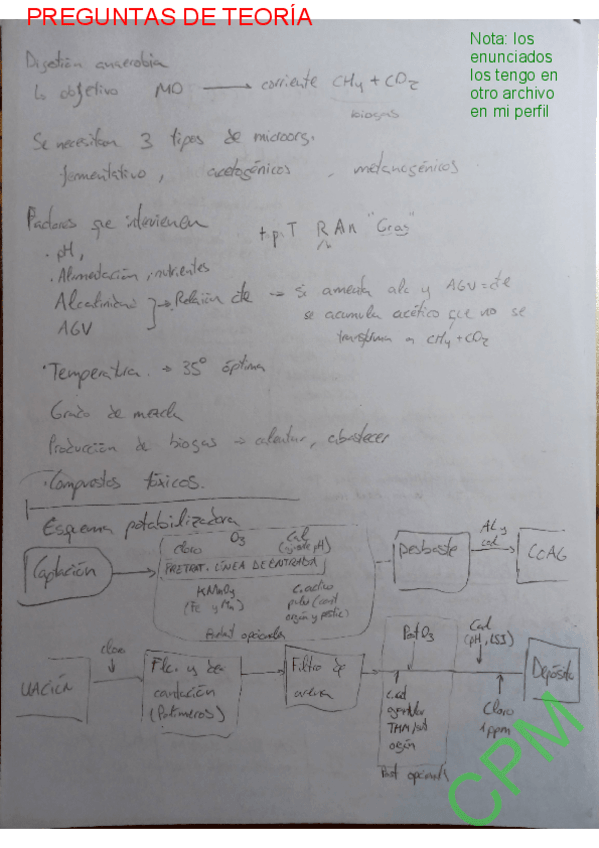 PREGUNTAS DE TEORÍA
Nota: los
enunciados
los tengo en
otro archivo
en mi perfil
Digestión anaerobia
objetivo MO → corriente CH4 + CO2
biogas
Se necesitan 3 tipos de microorg.
fermentativo, acetogénicos, metanogénicos
Factores que intervienen
· pH,
· Alimentación, nutrientes
Alcalinidad
AGV
Relación cte → si aumenta alc y AGV = cte
se acumula acético que no se
transforma en CH4 + CO2
· Temperatura → 35° óptima
Grado de mezcla
Producción de biogas → calentar, abastecer
· Compuestos tóxicos.
Esquema potabilizadora
Captación
cloro O3 Cal
(ajuste pH)
PRETRAT. LÍNEA DE ENTRADA
KMnO4
(Fe y Mn)
C. activo
opcional
Desbaste
Al y
cal
COAG
ULACIÓN
cloro
Floc. y de
cantación
(Polímeros)
Filtro de
arena
Post O3
C. act
granular
THM
orgán
Post opcional
Cal
(pH, LSI)
Cloro
1 ppm
Depósito
CPM